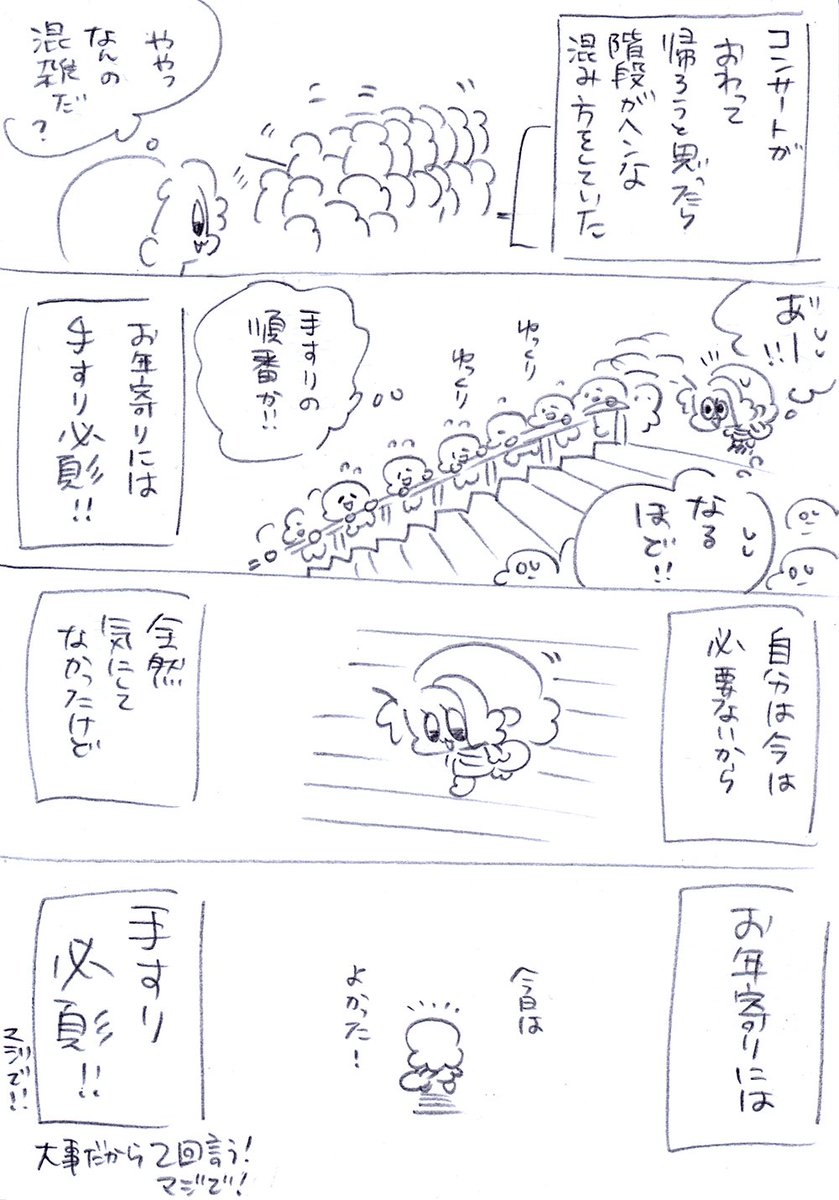 コンサートが
おわって
帰ろうと思ったら
階段がヘンな
混み方をしていた
ややっ
なんの
混雑だ?
あーー!!
なる
ほど!!
ゆっくり
ゆっくり
手すりの
順番か!!
お年寄りには
手すり必須!!
自分は今は
必要ないから
全然
気にして
なかったけど
お年寄りには
今日は
よかった!
手すり
必須!!
マジで!!
大事だから2回言う!
マジで!